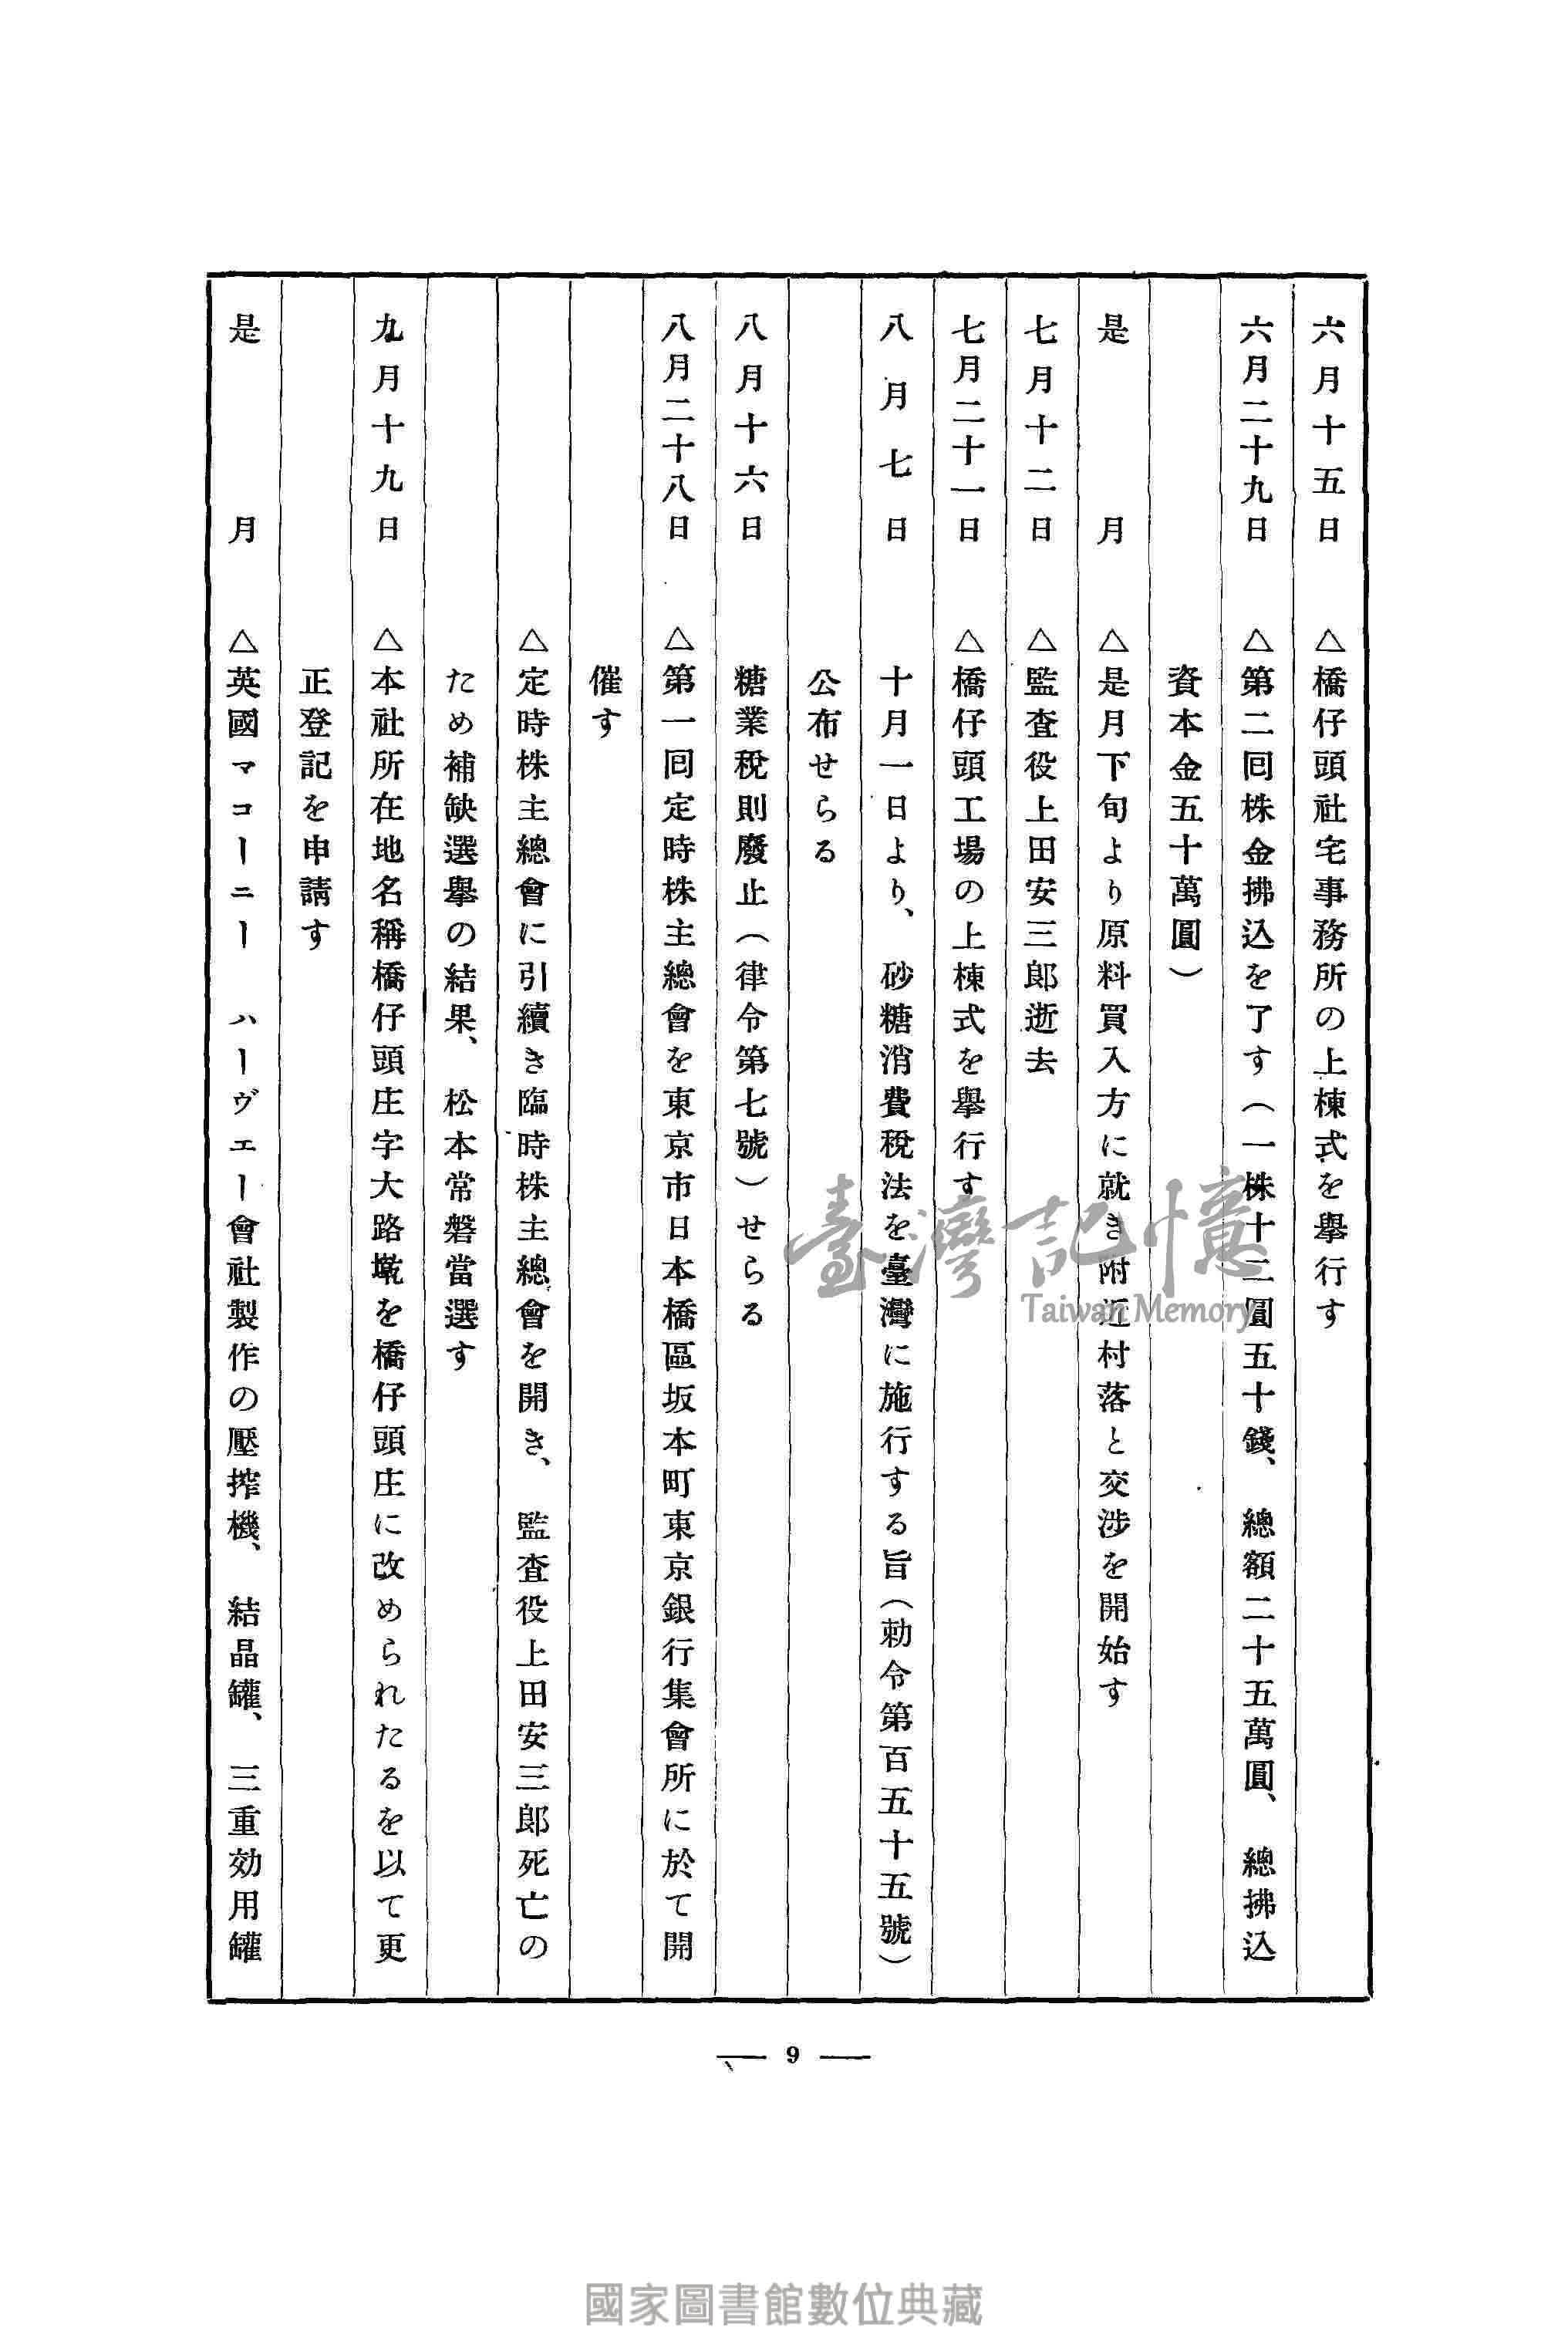 六月十五日　△橋仔頭社宅事務所の上棟式を擧行す
六月二十九日　△第二囘株金拂込を了す（一株十二圓五十錢、總額二十五萬圓、總拂込
資本金五十萬圓）
是月　△是月下旬より原料買入方に就き附近村落と交涉を開始す
七月十二日　△監査役上田安三郎逝去
七月二十一日　△橋仔頭工場の上棟式を擧行す
八月七日　十月一日より、砂糖消費稅法を臺灣に施行する旨（勅令第百五十五號）
公布せらる
八月十六日　糖業稅則廢止（律令第七號）せらる
八月二十八日　△第一囘定時株主總會を東京市日本橋區坂本町東京銀行集會所に於て開
催す
△定時株主總會に引續き臨時株主總會を開き、監査役上田安三郎死亡の
ため補缺選擧の結果、松本常磐當選す
九月十九日　△本社所在地名稱橋仔頭庄字大路墘を橋仔頭庄に改められたるを以て更
正登記を申請す
是月　△英國マコーニー ハーヴェー會社製作の壓搾機、結晶罐、三重効用罐
— 9 —
臺灣記憶
Taiwan Memory
國家圖書館數位典藏